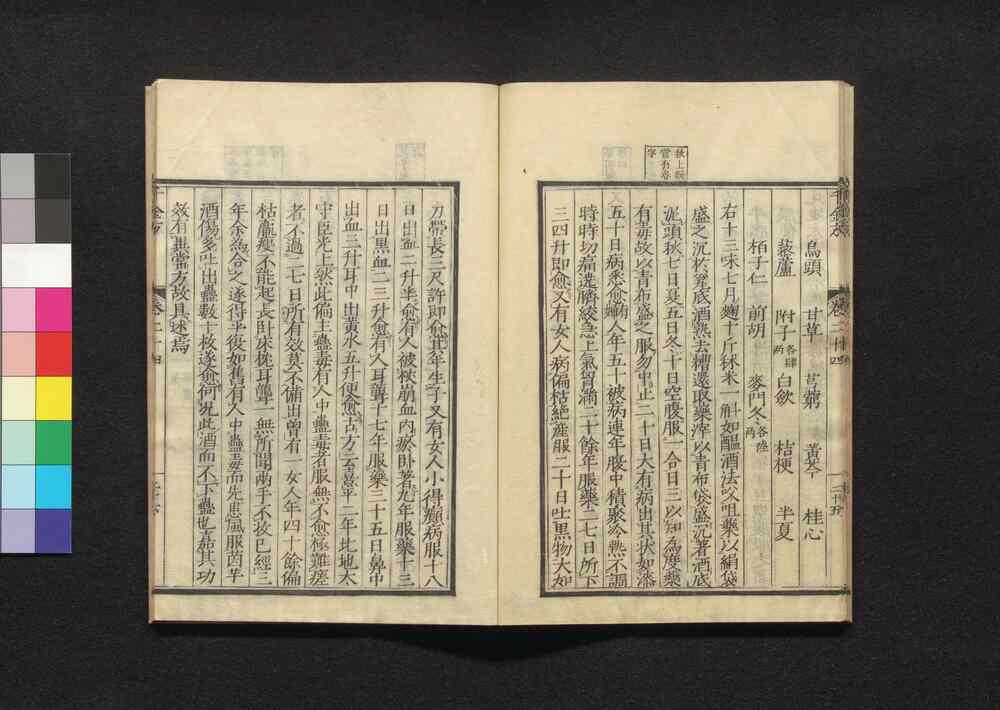 秋上蜈
當有春
字
烏頭 甘草 芎藭 黃芩 桂心
藜蘆 附子各肆兩 白斂 桔梗 半夏
栢子仁 前胡 麥門冬各陸兩
右十三味七月麴十斤秫米一斛如醞酒法㕮咀藥以絹袋
盛之沉於甕底酒熟去糟還取藥滓以青布袋盛沉著酒底
泥頭秋七日夏五日冬十日空腹服一合日三以知為度藥
有毒故以青布盛之服勿中止二十日大有病出其狀如漆
五十日病悉愈婦人年五十被病連年腹中積聚冷熱不調
時時切痛遶臍絞急上氣胷滿二十餘年服藥二七日所下
三四升即愈又有女人病偏枯絶產服二十日吐黑物大如
刀帶長三尺許即愈其年生子又有女人小得癲病服十八
日出血二升半愈有人被杖崩血內瘀臥著九年服藥十三
日出黑血二三升愈有人耳聾十七年服藥三十五日鼻中
出血三升耳中出黃水五升便愈古方云熹平二年北地太
守臣光上然此偏主蠱毒有人中蠱毒者服無不愈極難瘥
者不過二七日所有效莫不備出曽有一女人年四十餘偏
枯羸瘦不能起長臥床枕耳聾一無所聞兩手不收已經三
年余為合之遂得平復如舊有人中蠱毒而先患風服茵芋
酒傷多吐出蠱數十枚遂愈何况此酒而不下蠱也嘉其功
效有異常方故具述焉
千金方
卷二十四
二十五